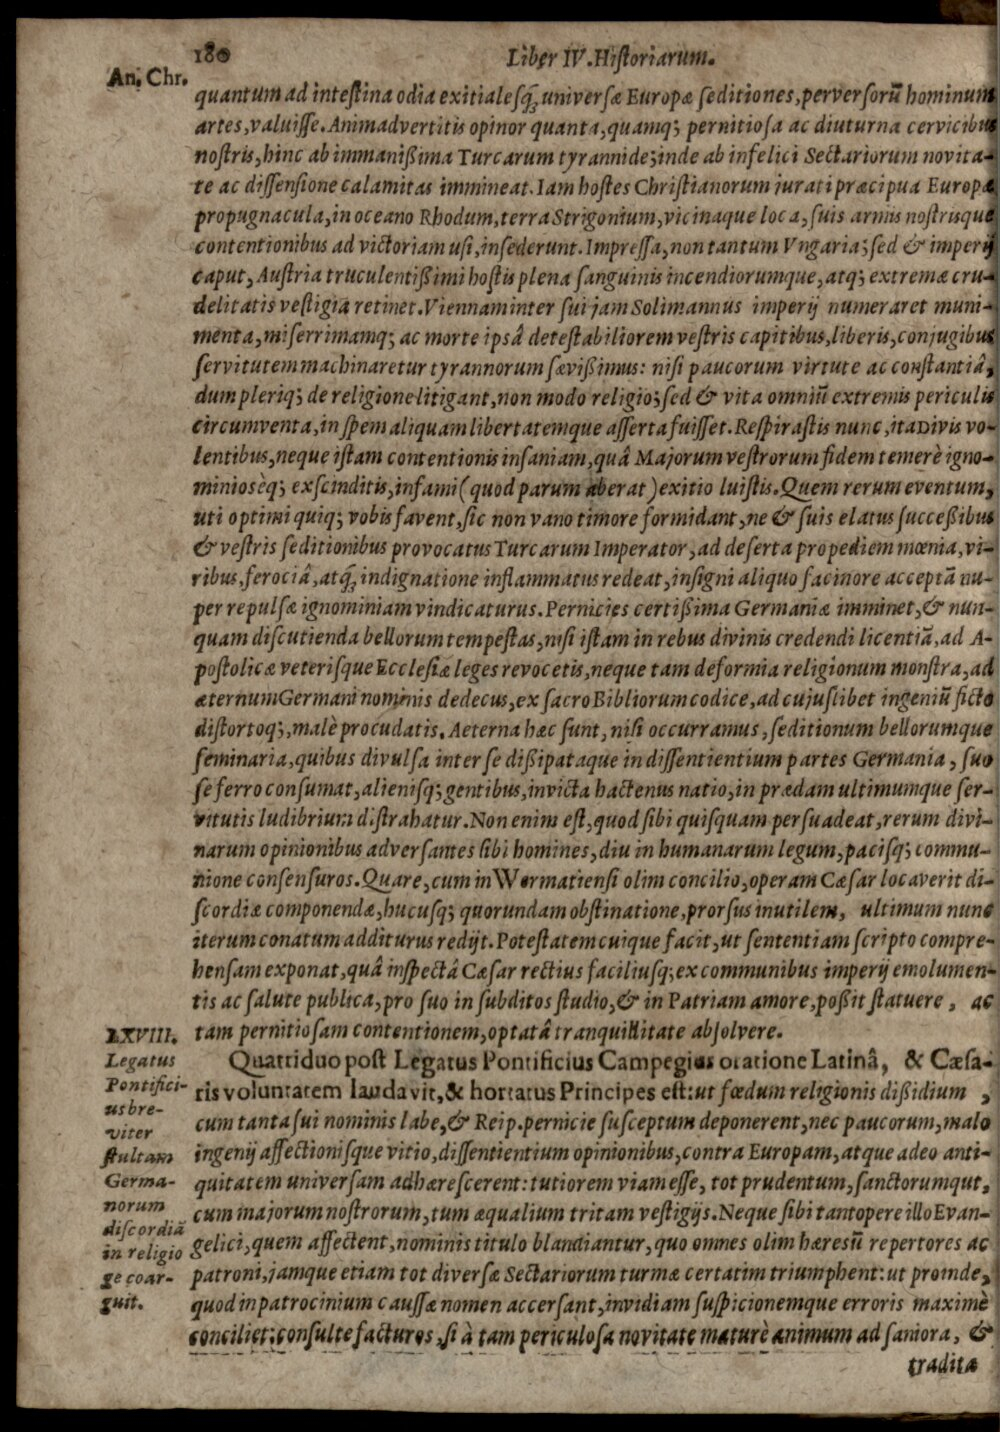 180
Liber IV. Historiarum.
An. Chr.
quantum ad intestina odia exitialesq́ꝫ universæ Europæ seditiones, perversorũ hominum
artes, valuisse. Animadvertitis opinor quanta, quamqꝫ pernitiosa ac diuturna cervicibus
nostris, hinc ab immanißima Turcarum tyrannide; inde ab infelici Sectariorum novita-
te ac dissensione calamitas immineat. Iam hostes Christianorum jurati præcipua Europæ
propugnacula, in oceano Rhodum, terra Strigonium, vicinaque loca, suis armis nostrisque
contentionibus ad victoriam usi, insederunt. Impressa, non tantum Vngaria; sed & imperij
caput, Austria truculentißimi hostis plena sanguinis incendiorumque, atqꝫ extremæ cru-
delitatis vestigia retinet. Viennam inter sui jam Solimannus imperij numeraret muni-
menta, miserrimamqꝫ ac morte ipsâ detestabiliorem vestris capitibus, liberis, conjugibus
servitutem machinaretur tyrannorum sævißimus: nisi paucorum virtute ac constantiâ,
dum pleriqꝫ de religione litigant, non modo religio; sed & vita omniũ extremis periculis
circumventa, in spem aliquam libertatemque asserta fuisset. Respirastis nunc, ita DIVIS vo-
lentibus, neque istam contentionis insaniam, quâ Majorum vestrorum fidem temerè igno-
miniosèqꝫ exscinditis, infami (quod parum aberat) exitio luistis. Quem rerum eventum,
uti optimi quiqꝫ vobis favent, sic non vano timore formidant, ne & suis elatus succeßibus
& vestris seditionibus provocatus Turcarum Imperator, ad deserta propediem mœnia, vi-
ribus, ferociâ, atq́ꝫ indignatione inflammatus redeat, insigni aliquo facinore acceptã nu-
per repulsæ ignominiam vindicaturus. Pernicies certißima Germaniæ imminet, & nun-
quam discutienda bellorum tempestas, nisi istam in rebus divinis credendi licentiã, ad A-
postolicæ veterisque Ecclesiæ leges revocetis, neque tam deformia religionum monstra, ad
æternum Germani nominis dedecus, ex sacro Bibliorum codice, ad cujuslibet ingeniũ ficto
distortoqꝫ, malè procudatis. Aeterna hæc sunt, nisi occurramus, seditionum bellorumque
seminaria, quibus divulsa inter se dißipataque in dissentientium partes Germania, suo
se ferro consumat, alienisqꝫ gentibus, invicta hactenus natio, in prædam ultimumque ser-
vitutis ludibrium distrahatur. Non enim est, quod sibi quisquam persuadeat, rerum divi-
narum opinionibus adversantes sibi homines, diu in humanarum legum, pacisqꝫ commu-
nione consensuros. Quare, cum in Wormatiensi olim concilio, operam Cæsar locaverit di-
scordiæ componendæ, hucusqꝫ quorundam obstinatione, prorsus inutilem, ultimum nunc
iterum conatum additurus redijt. Potestatem cuique facit, ut sententiam scripto compre-
hensam exponat, quâ inspectâ Cæsar rectius faciliusqꝫ ex communibus imperij emolumen-
tis ac salute publica, pro suo in subditos studio, & in Patriam amore, poßit statuere, ac
tam pernitiosam contentionem, optatâ tranquillitate absolvere.
LXVIII.
Legatus
Pontifici-
us bre-
viter
stultam
Germa-
norum
discordiã
in religio
ne coar-
guit.
Quatriduo post Legatus Pontificius Campegius oratione Latinâ, & Cæsa-
ris voluntatem laudavit, & hortatus Principes est: ut fœdum religionis dißidium,
cum tanta sui nominis labe, & Reip. pernicie susceptum deponerent, nec paucorum, malo
ingenij affectionisque vitio, dissentientium opinionibus, contra Europam, atque adeo anti-
quitatem universam adhærescerent: tutiorem viam esse, tot prudentum, sanctorumqut,
cum majorum nostrorum, tum æqualium tritam vestigijs. Neque sibi tantopere illo Evan-
gelici, quem affectent, nominis titulo blandiantur, quo omnes olim hæresũ repertores ac
patroni, jamque etiam tot diversæ Sectariorum turmæ certatim triumphent: ut proinde,
quod in patrocinium caussæ nomen accersant, invidiam suspicionemque erroris maximè
conciliet; consulte facturos, si à tam periculosa novitate maturè animum ad saniora, &
tradita